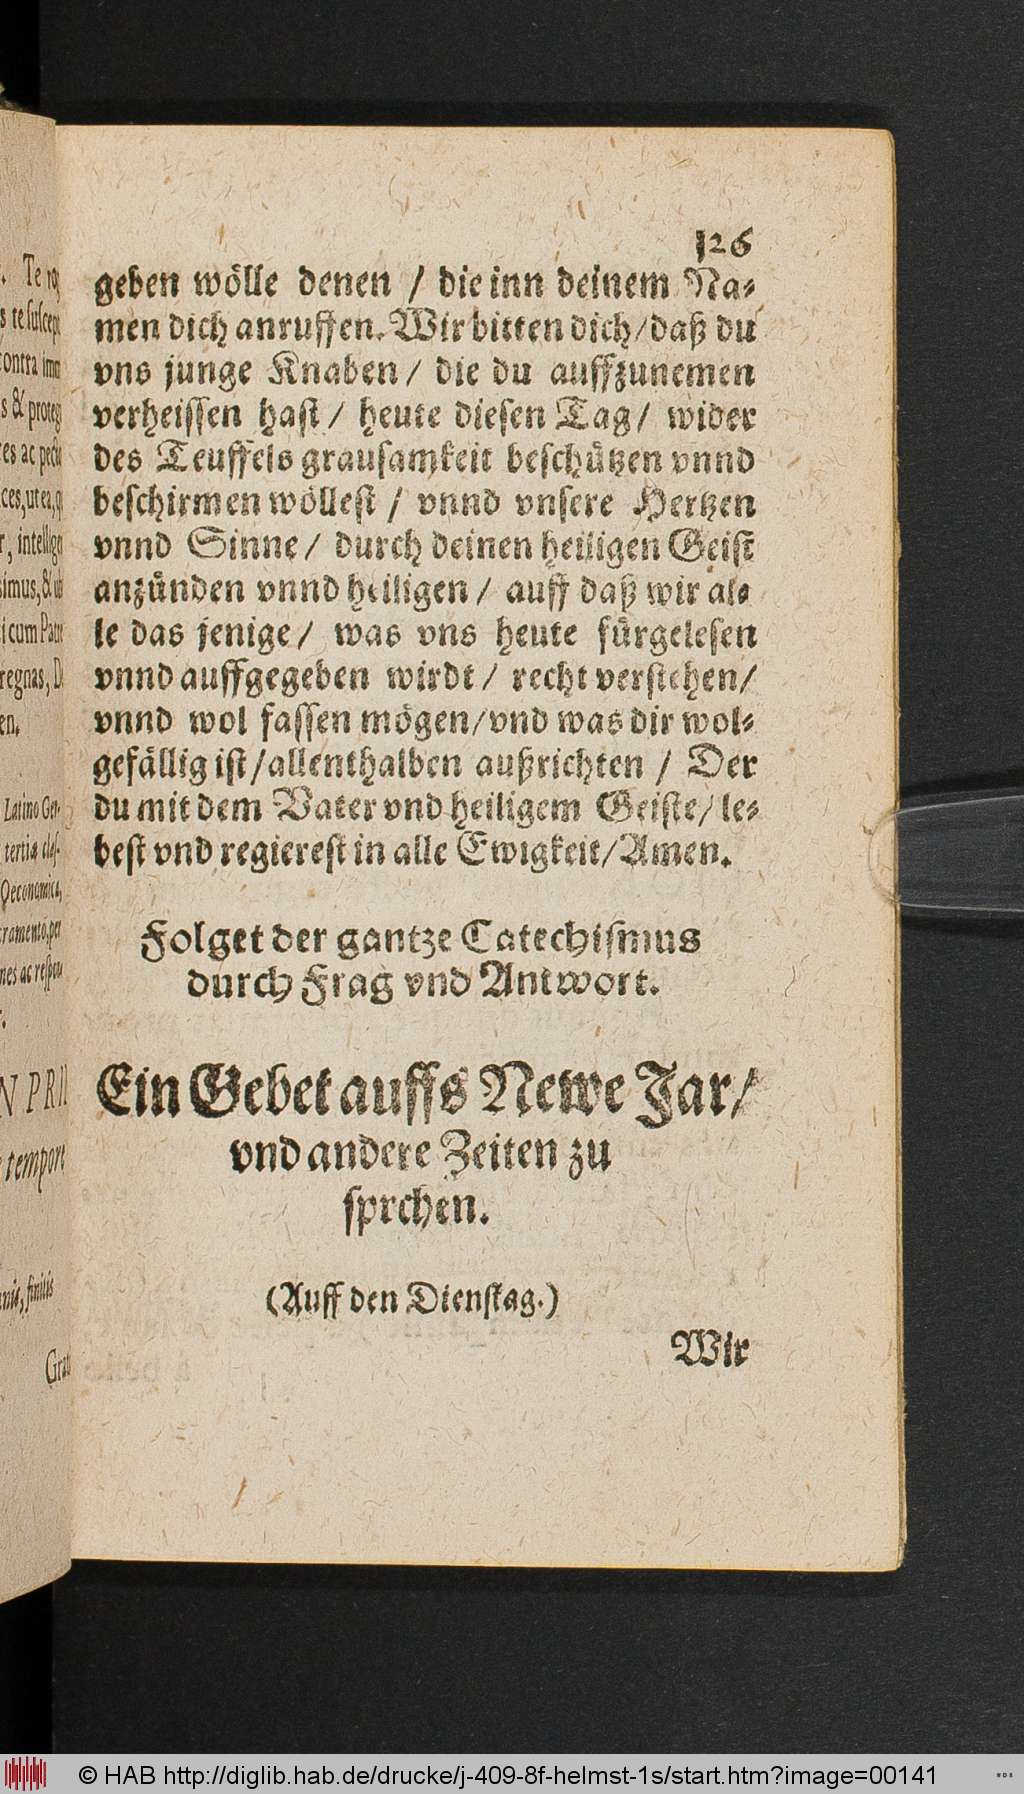 126
geben wölle denen / die inn deinem Na-
men dich anruffen. Wir bitten dich / daß du
vns junge Knaben / die du auffzunemen
verheissen hast / heute diesen Tag / wider
des Teuffels grausamkeit beschützen vnnd
beschirmen wöllest / vnnd vnsere Hertzen
vnnd Sinne / durch deinen heiligen Geist
anzünden vnnd heiligen / auff daß wir al-
le das jenige / was vns heute fürgelesen
vnnd auffgegeben wirdt / recht verstehen /
vnnd wol fassen mögen / vnd was dir wol-
gefällig ist / allenthalben außrichten / Der
du mit dem Vater vnd heiligem Geiste / le-
best vnd regierest in alle Ewigkeit / Amen.
Folget der gantze Catechismus
durch Frag vnd Antwort.
Ein Gebet auffs Newe Jar /
vnd andere Zeiten zu
sprchen.
(Auff den Dienstag.)
Wir
© HAB http://diglib.hab.de/drucke/j-409-8f-helmst-1s/start.htm?image=00141